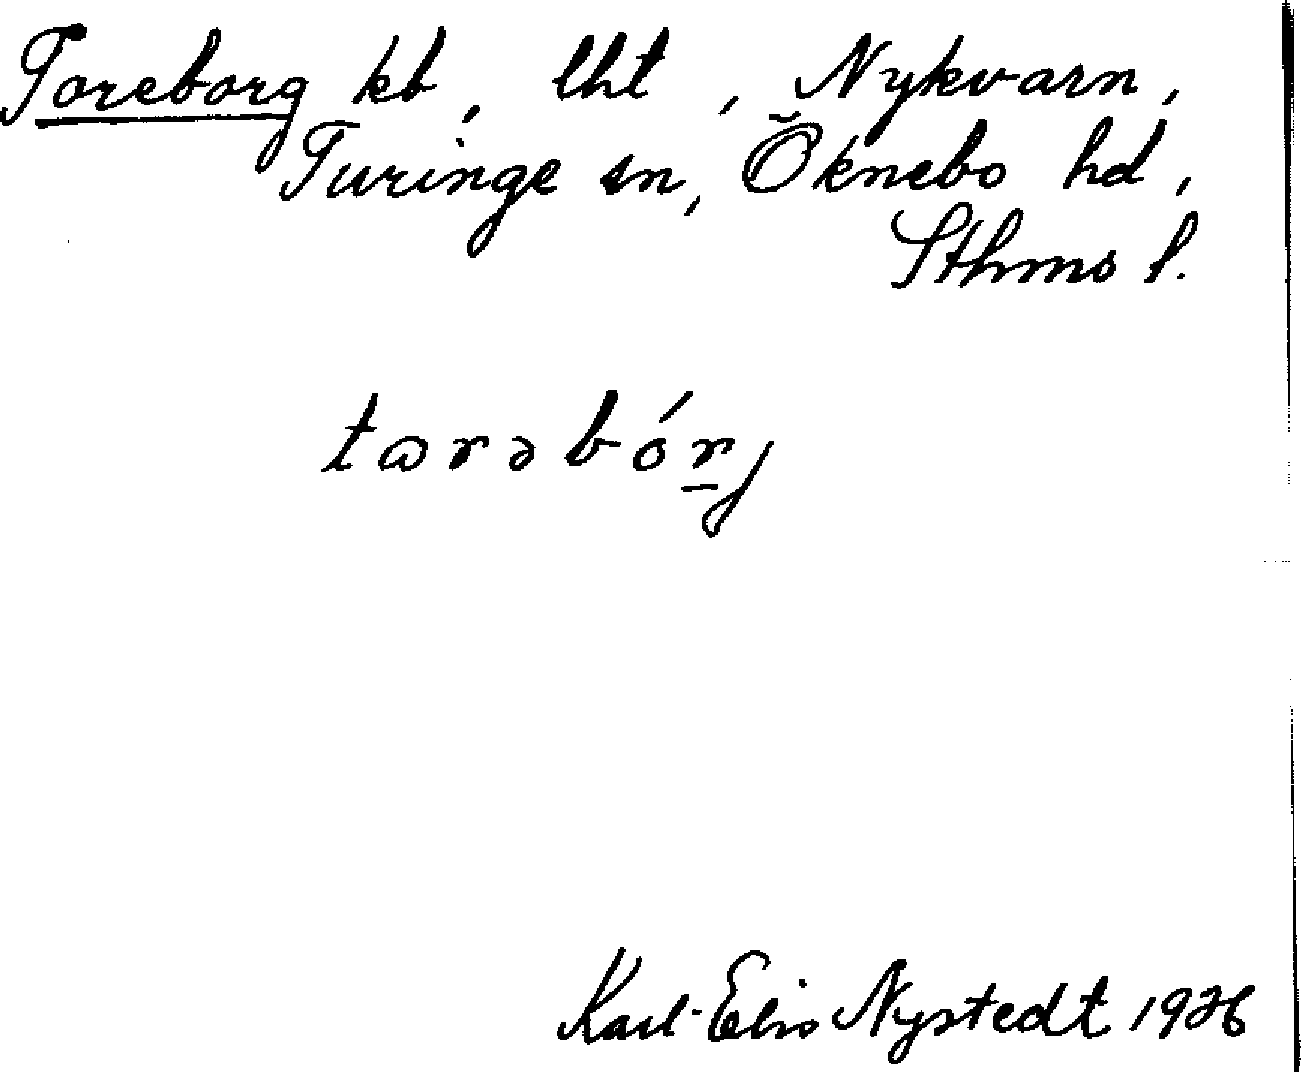 Toreborg kb, lht, Nykvarn,
Turinge sn, Öknebo hd,
Sthms l.
tɷrəbórj
Karl-Elis Nystedt 1936